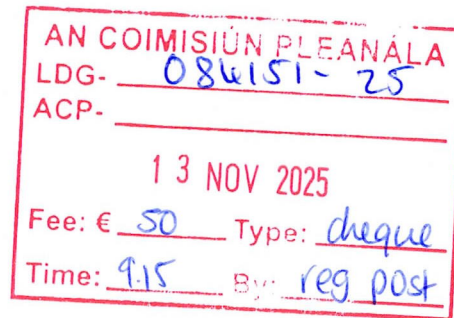 AN COIMISIÚN PLEANÁLA
LDG- 084151-25
ACP-
13 NOV 2025
Fee: € 50 Type: cheque
Time: 9.15 By: reg post